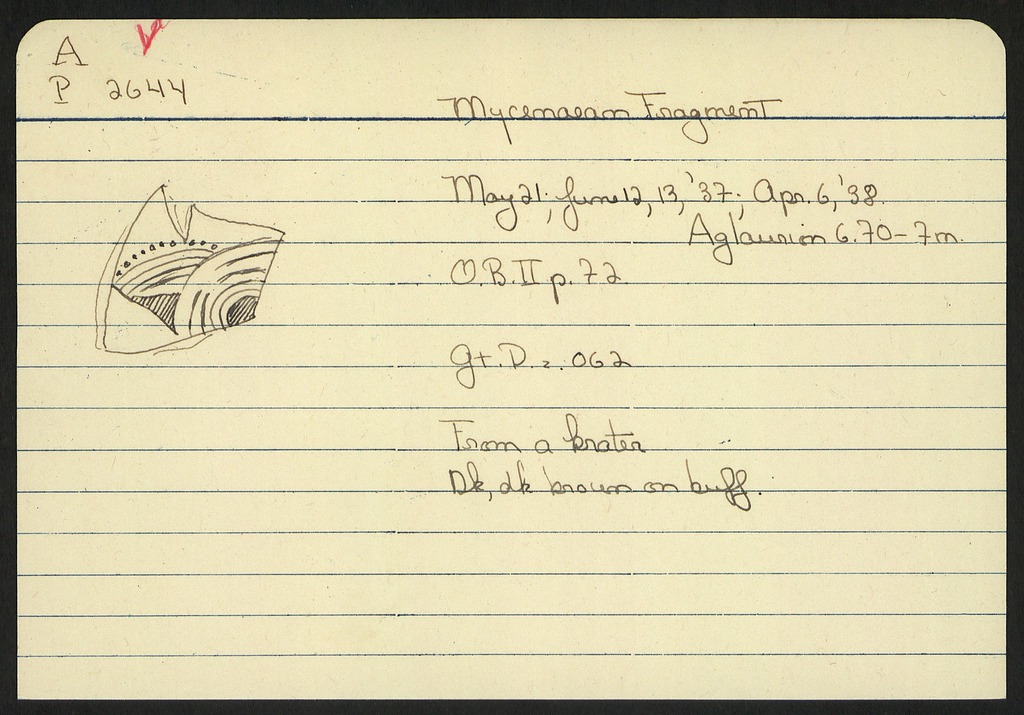 A
P 2644
Mycenaean Fragment
May 21; June 12, 13, '37; Apr. 6, '38.
Aglaurion 6.70-7m.
O.B.II p. 72
Gt. D. = .062
From a krater
Dk, dk brown on buff.